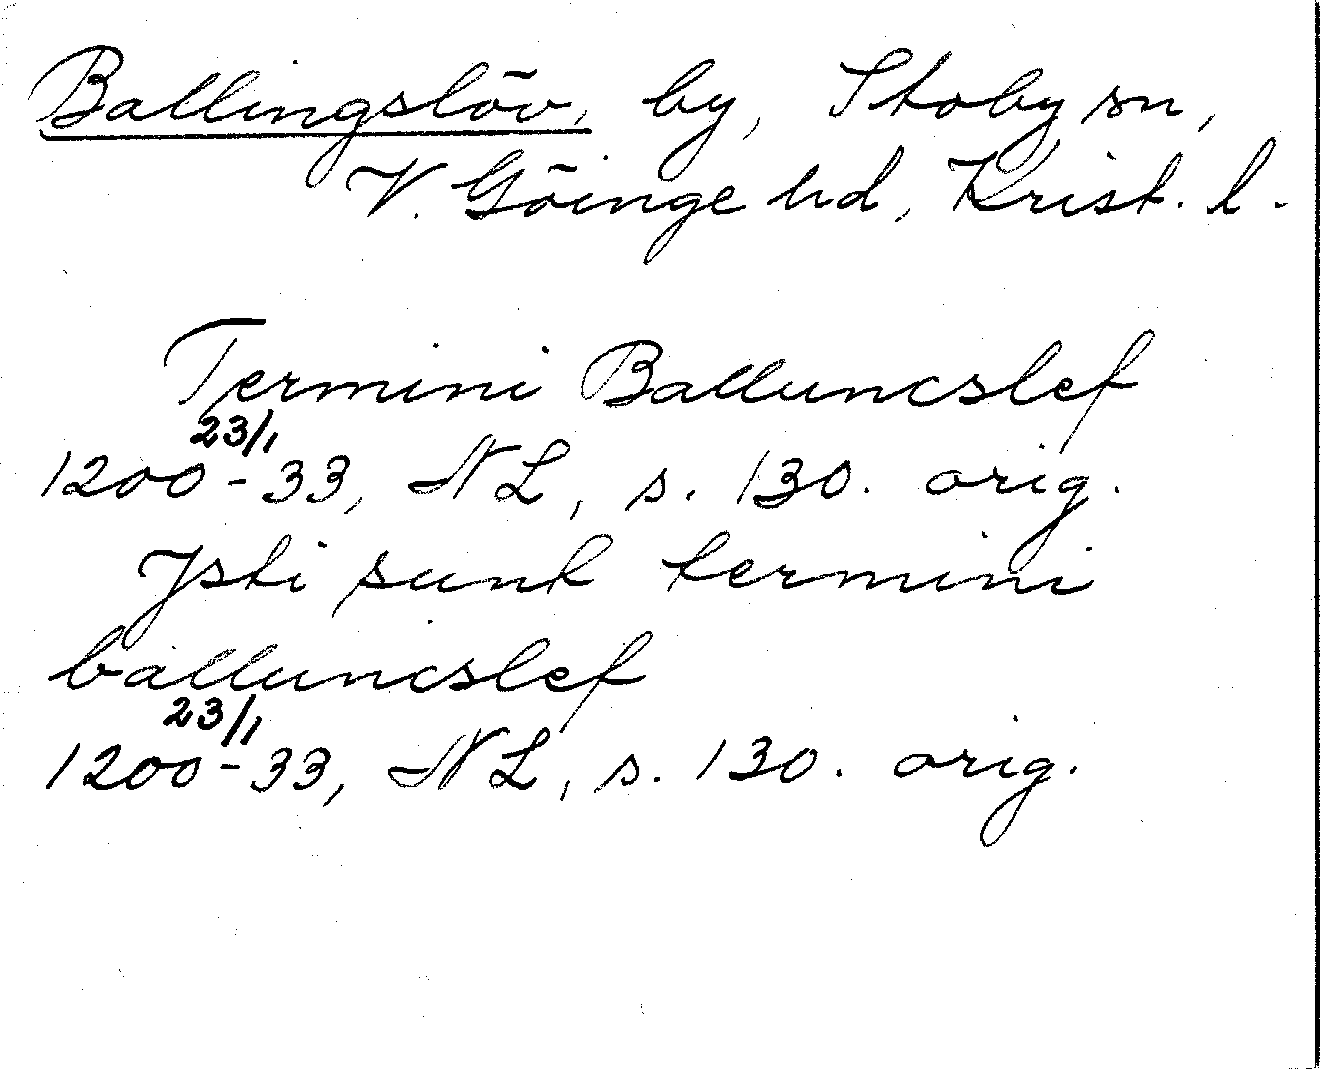 Ballingslöv, by, Stoby sn,
V. Göinge hd, Krist. l.
Termini Balluncslef
23/1
1200-33, NL, s. 130. orig.
Jsti sunt termini
balluncslef
23/1
1200-33, NL, s. 130. orig.